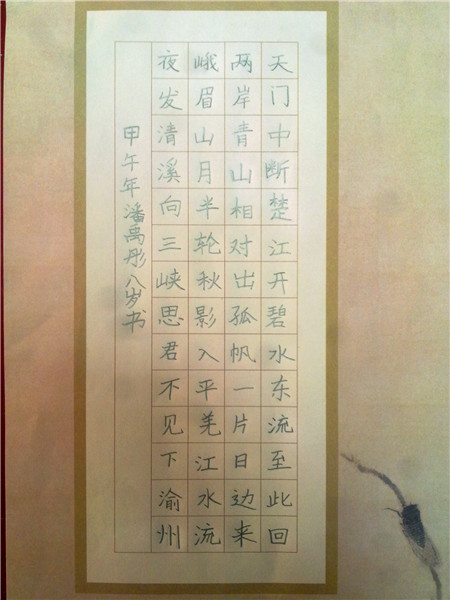 天门中断楚江开碧水东流至此回
两岸青山相对出孤帆一片日边来
峨眉山月半轮秋影入平羌江水流
夜发清溪向三峡思君不见下渝州
甲午年潘禹彤八岁书